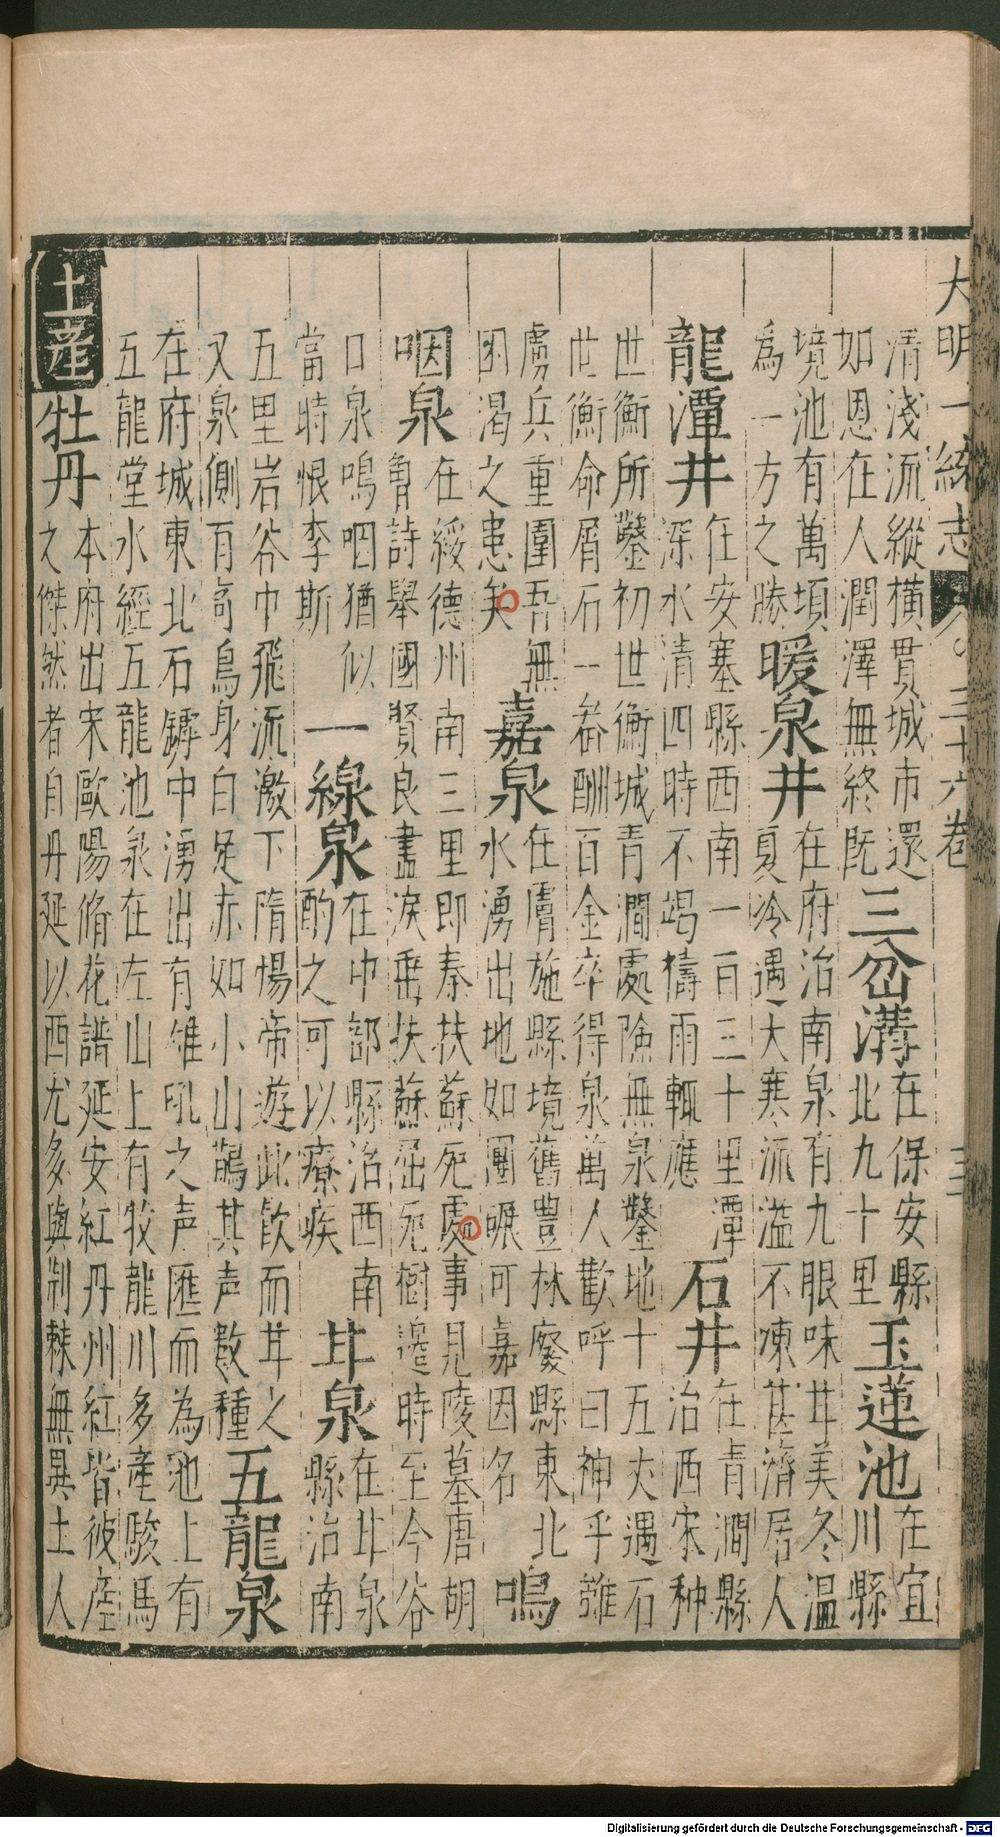 大明一統志 三十六卷 三
清淺流縱横貫城市還
如恩在人潤澤無終既
三岔溝
在保安縣
北九十里
玉蓮池
在宜
川縣
境池有萬頃
為一方之勝
暖泉井
在府治南泉有九眼味甘美冬温
夏冷遇大寒流溢不凍甚濟居人
龍潭井
在安塞縣西南一百三十里潭
深水清四時不竭禱雨輒應
石井
在青澗縣
治西宋种
世衡所鑿初世衡城青澗處險無泉鑿地十五丈遇石
世衡命屑石一畚酬百金卒得泉萬人歡呼曰神乎雖
虜兵重圍吾無
困渴之患矣
嘉泉
在膚施縣境舊豐林廢縣東北
水湧出地如團碾可嘉因名
鳴
咽泉
在綏德州南三里即秦扶蘇死處事見陵墓唐胡
曾詩舉國賢良盡淚垂扶蘇屈死樹邊時至今谷
口泉鳴咽猶似
當時恨李斯
一線泉
在中部縣治西南
酌之可以療疾
甘泉
在甘泉
縣治南
五里岩谷中飛流激下隋煬帝遊此飲而甘之
又泉側有奇鳥身白足赤如小山鵲其声数種
五龍泉
在府城東北石罅中湧出有雄吼之声匯而為池上有
五龍堂水經五龍池泉在左山上有牧龍川多產駿馬
土產
牡丹
本府出宋歐陽脩花譜延安紅丹州紅皆彼產
之傑然者自丹延以西尤多與荆棘無異土人
Digitalisierung gefördert durch die Deutsche Forschungsgemeinschaft - DFG